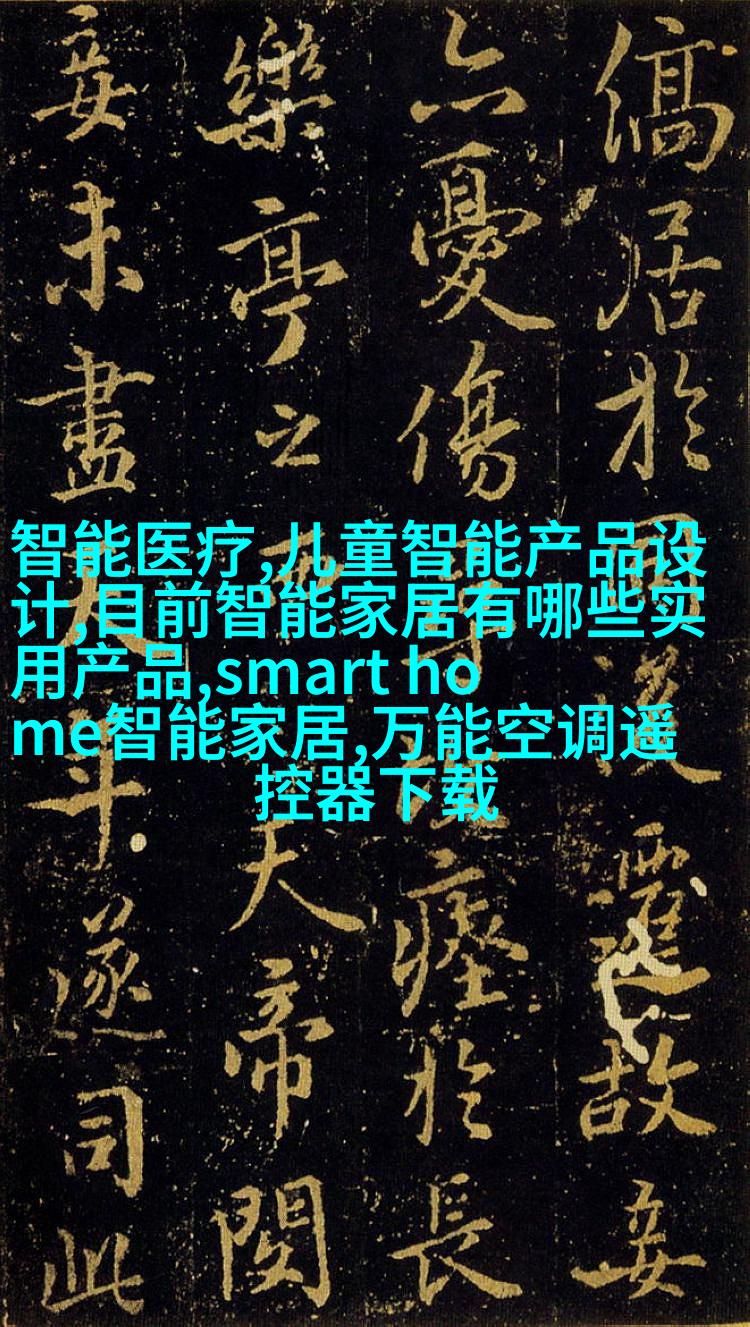 居於後遷故妾
憂傷瘞於長
樂亭之西天帝閔
妾未盡天年遂司此
智能医疗,儿童智能产品设
计,目前智能家居有哪些实
用产品,smart ho
me智能家居,万能空调遥
控器下载